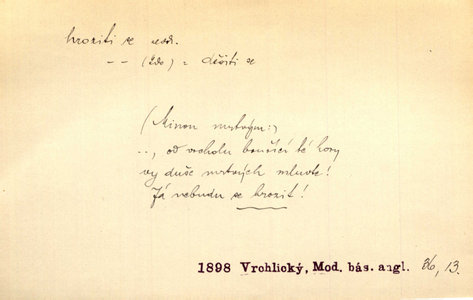 hroziti se ned.
-- (kdo) = děsiti se
(Minon mrtvým:)
.., od vrcholu bouřící té hory
vy duše mrtvých mluvte!
Já nebudu se hrozit!
1898 Vrchlický, Mod. bás. angl. 36, 13.